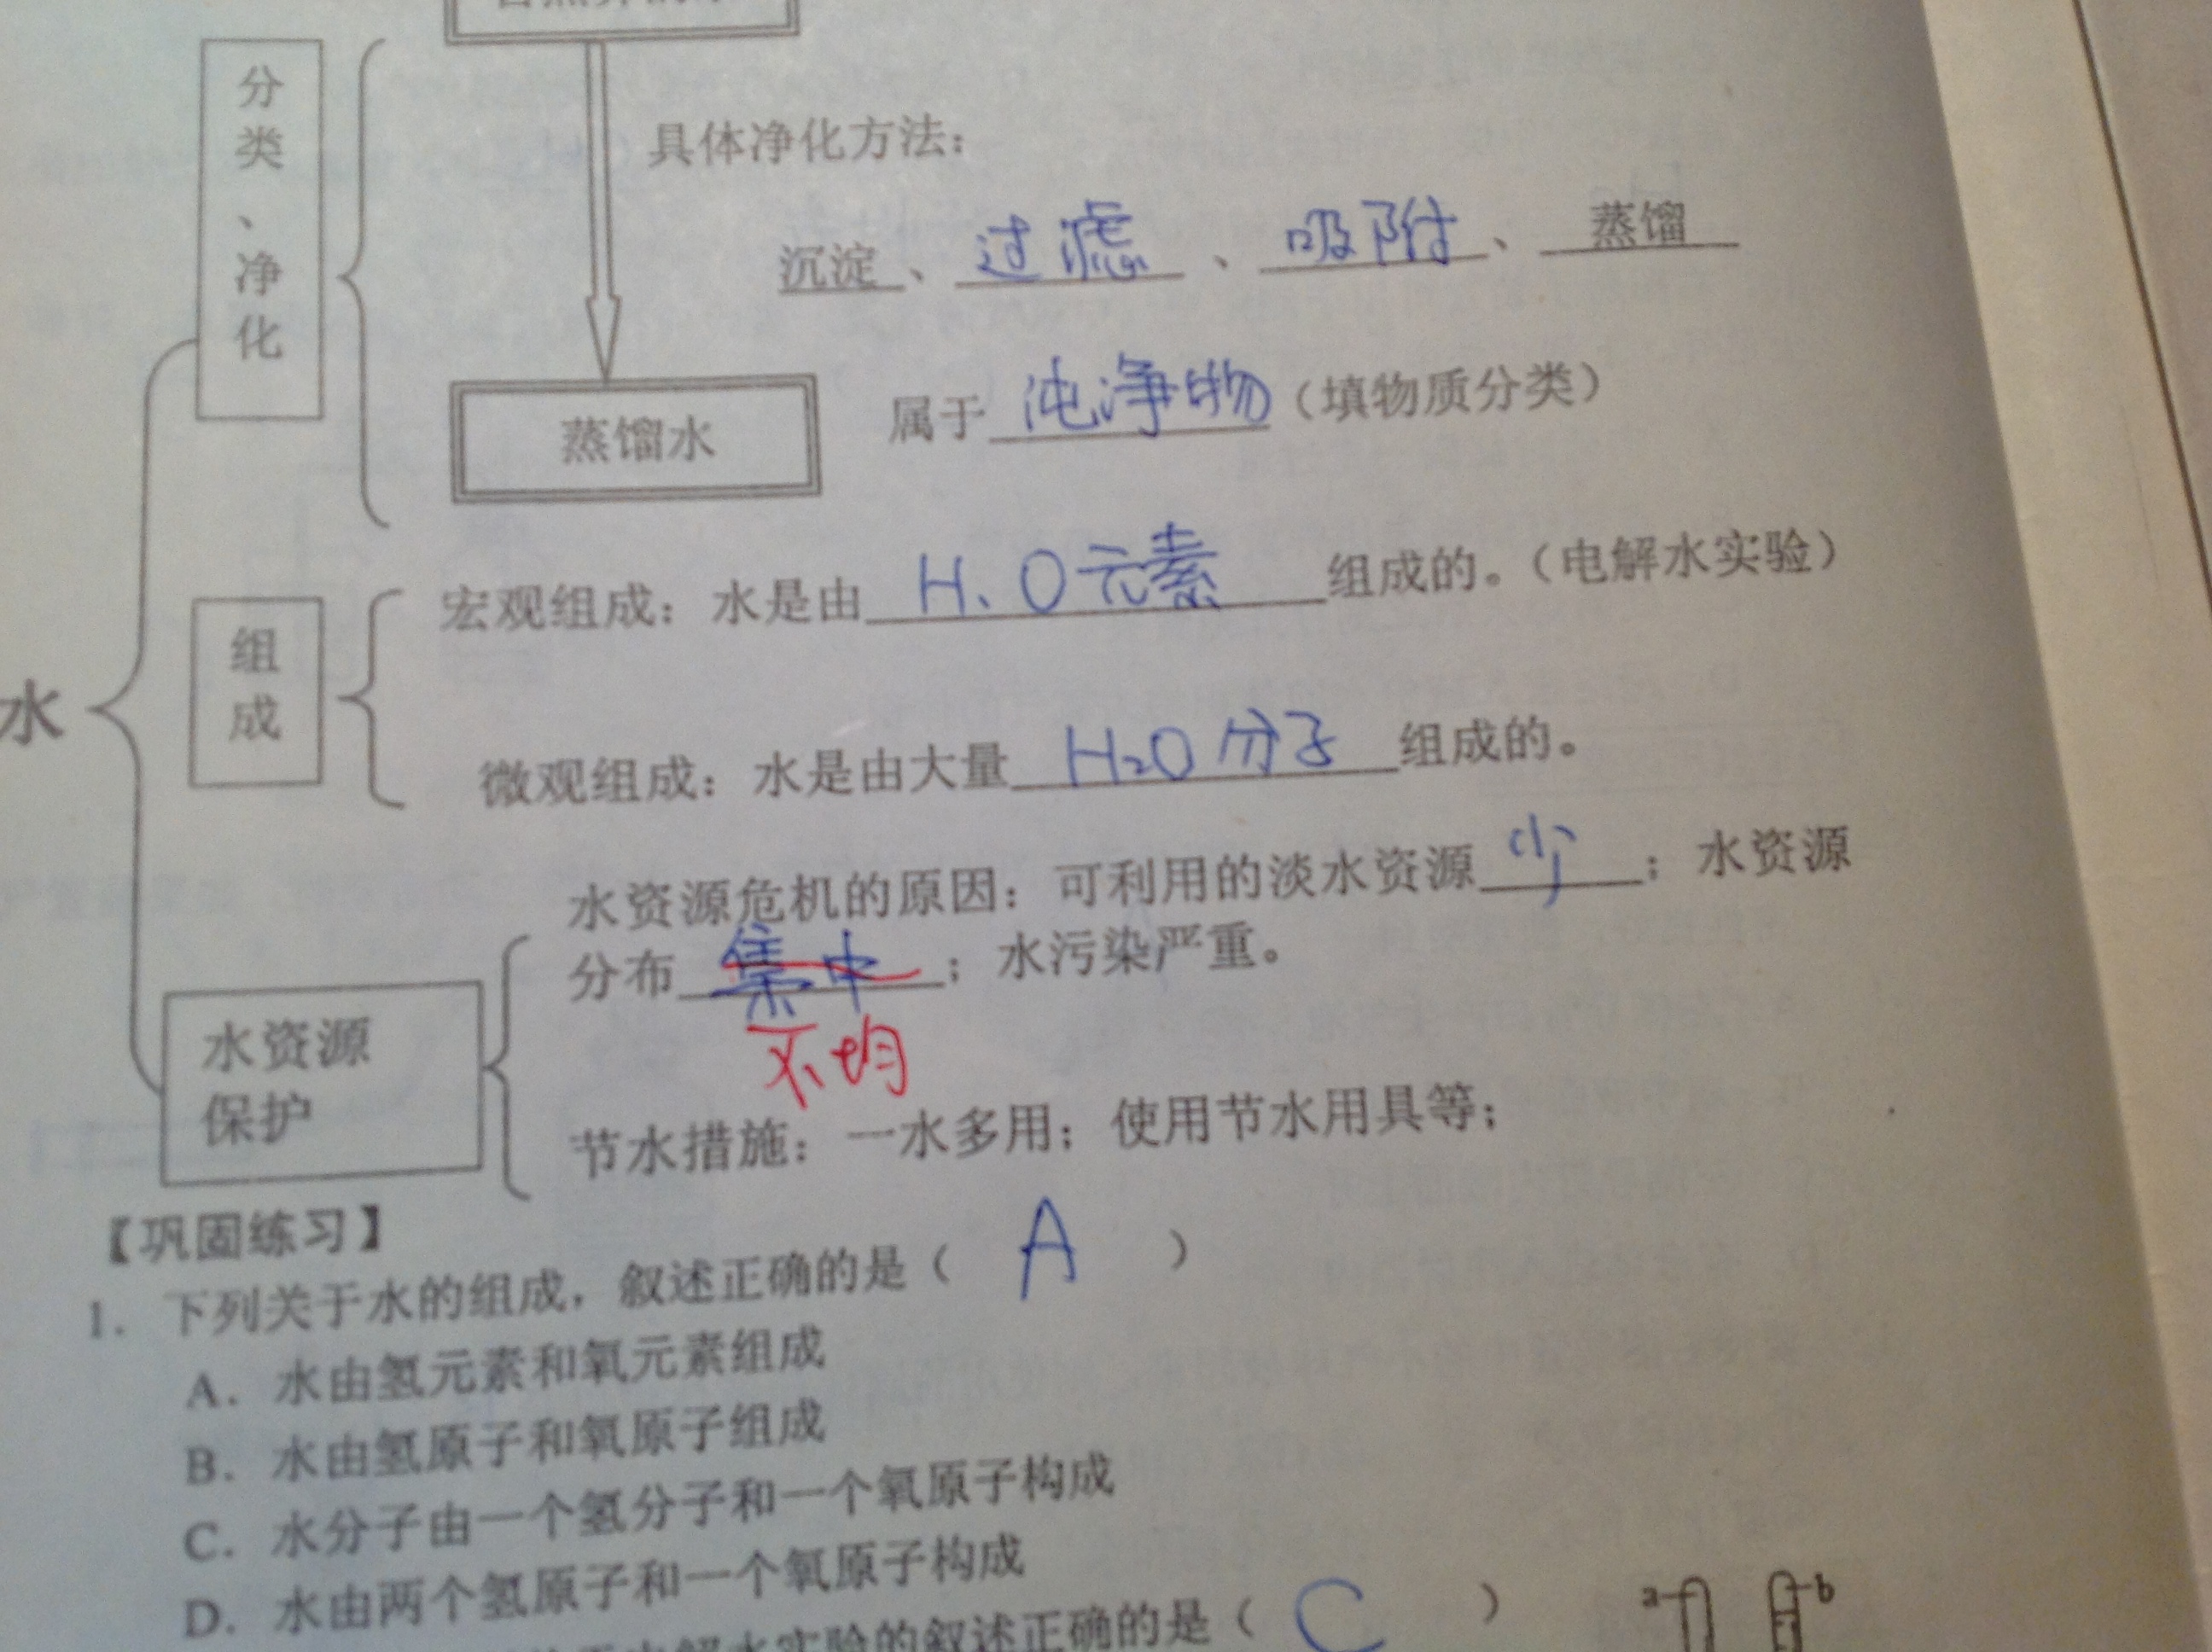 分类、净化
具体净化方法：
沉淀、过滤、吸附、蒸馏
蒸馏水
属于纯净物（填物质分类）
水
组成
宏观组成：水是由H、O元素组成的。（电解水实验）
微观组成：水是由大量H₂O分子组成的。
水资源保护
水资源危机的原因：可利用的淡水资源少；水资源
分布集中；水污染严重。
不均
节水措施：一水多用；使用节水用具等；
【巩固练习】
1. 下列关于水的组成，叙述正确的是（ A ）
A. 水由氢元素和氧元素组成
B. 水由氢原子和氧原子组成
C. 水分子由一个氢分子和一个氧原子构成
D. 水由两个氢原子和一个氧原子构成
水实验的叙述正确的是（ C ）
a b